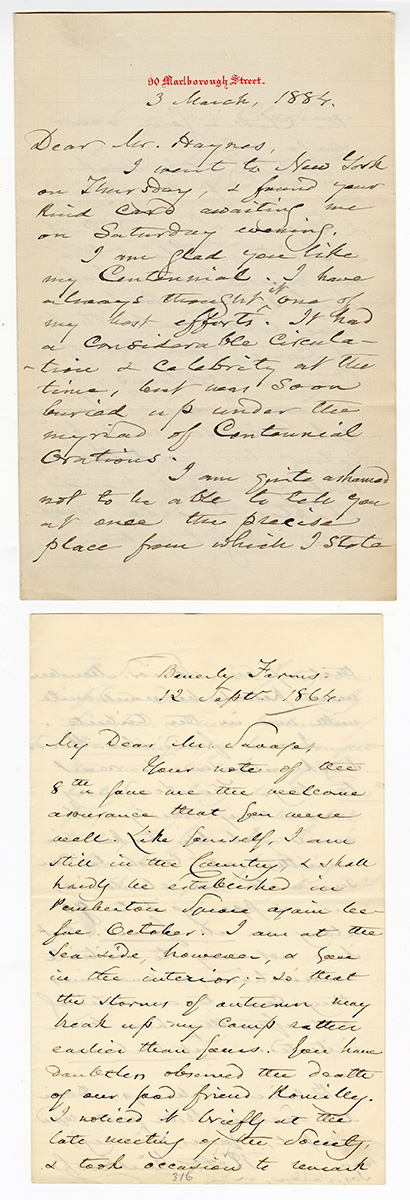 90 Marlborough Street.
3 March, 1884.
Dear Mr. Haynes,
I went to New York
on Thursday, & found your
kind card awaiting me
on Saturday evening.
I am glad you like
my Centennial. I have
always thought it one of
my best efforts. It had
a considerable circula-
-tion & celebrity at the
time, but was soon
buried up under the
myriad of Centennial
Orations.
I am quite ashamed
not to be able to tell you
at once the precise
place from which I stole
Beverly Farms.
12 Septr. 1864.
My Dear Mr. Savage,
Your note of the
8th gave me the welcome
assurance that you were
well. Like yourself, I am
still in the Country, & shall
hardly be established in
Pemberton Square again be-
fore October. I am at the
Sea side, however, & you
in the interior; - so that
the storms of autumn may
break up my camp rather
earlier than yours. You have
doubtless observed the death
of our good friend Romilly.
I noticed it briefly at the
late meeting of the Society,
& took occasion to remark
316